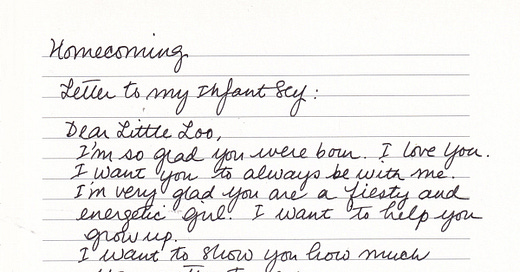 Homecoming
Letter to my Infant Sey:
Dear Little Loo,
I'm so glad you were born. I love you.
I want you to always be with me.
I'm very glad you are a fiesty and
energetic girl. I want to help you
grow up.
I want to show you how much